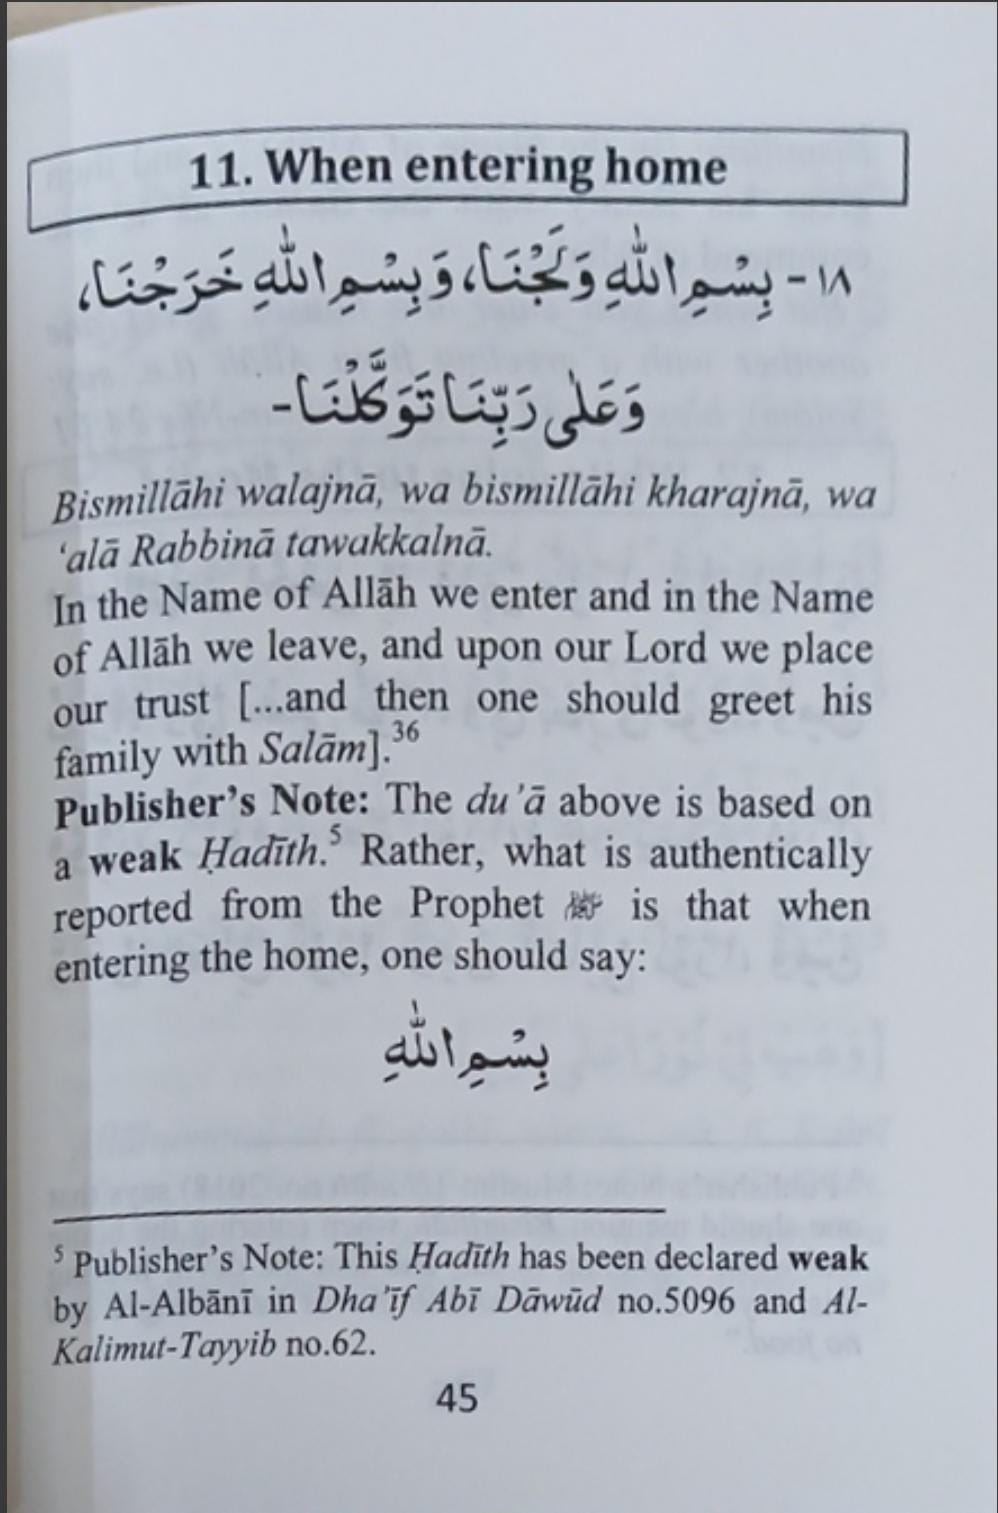 11. When entering home
١٨ - بِسْمِ اللّٰهِ وَلَجْنَا، وَبِسْمِ اللّٰهِ خَرَجْنَا،
وَعَلٰى رَبِّنَا تَوَكَّلْنَا-
Bismillāhi walajnā, wa bismillāhi kharajnā, wa
‘alā Rabbinā tawakkalnā.
In the Name of Allāh we enter and in the Name
of Allāh we leave, and upon our Lord we place
our trust [...and then one should greet his
family with Salām].³⁶
Publisher’s Note: The du’ā above is based on
a weak Ḥadīth.⁵ Rather, what is authentically
reported from the Prophet ﷺ is that when
entering the home, one should say:
بِسْمِ اللّٰهِ
⁵ Publisher’s Note: This Ḥadīth has been declared weak
by Al-Albānī in Dha’īf Abī Dāwūd no.5096 and Al-
Kalimut-Tayyib no.62.
45